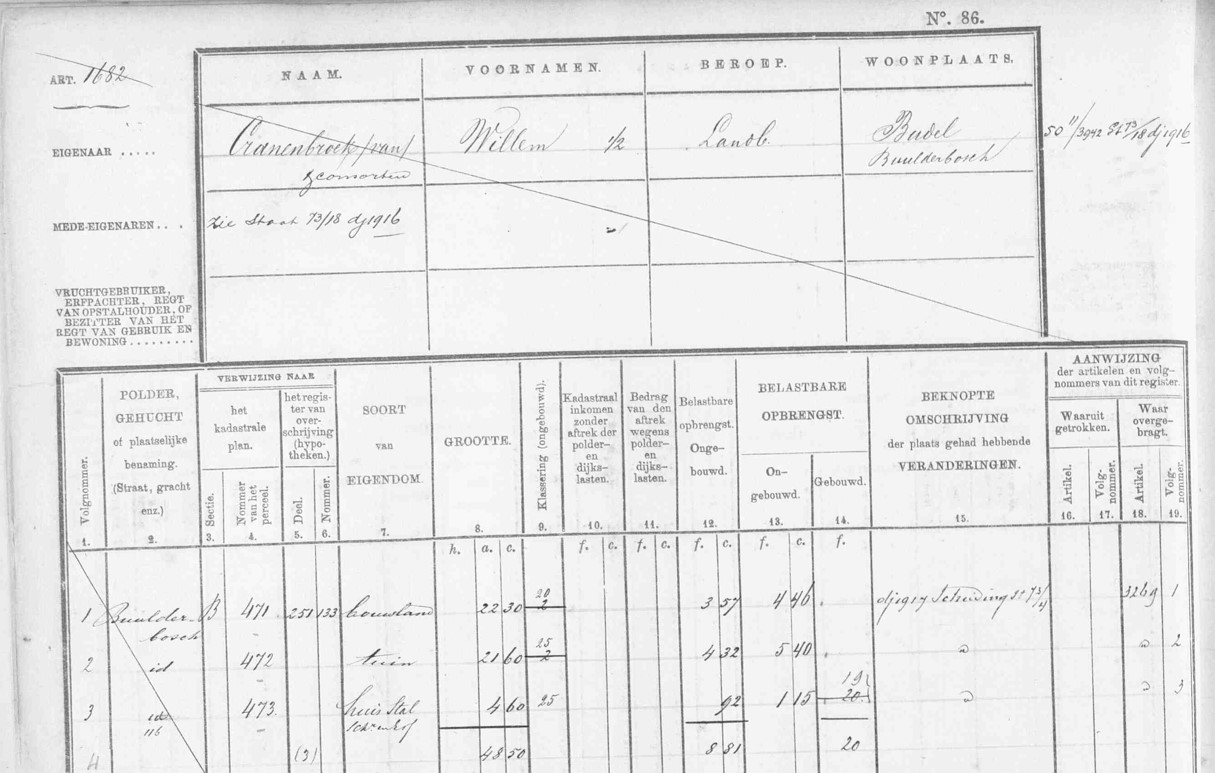 N°. 86.
ART. 1682
NAAM.
VOORNAMEN.
BEROEP.
WOONPLAATS.
EIGENAAR .....
Cranenbroek (van)
& consorten
Willem ½
Landb.
Budel
Buulderbosch
50 "/3942 St 73/18 dj 1916
MEDE-EIGENAREN... .
Zie Staat 73/18 dj 1916
VRUCHTGEBRUIKER,
ERFPACHTER, REGT
VAN OPSTALHOUDER, OF
BEZITTER VAN HET
REGT VAN GEBRUIK EN
BEWONING.........
Volgnommer.
1.
POLDER,
GEHUCHT
of plaatselijke
benaming.
(Straat, gracht
enz.)
2.
VERWIJZING NAAR
het
kadastrale
plan.
Sectie.
3.
Nommer
van het
perceel.
4.
het regis-
ter van
over-
schrijving
(hypo-
theken.)
Deel.
5.
Nommer.
6.
SOORT
van
EIGENDOM.
7.
GROOTTE.
8.
Klassering (ongebouwd).
9.
Kadastraal
inkomen
zonder
aftrek der
polder-
en
dijks-
lasten.
10.
Bedrag
van den
aftrek
wegens
polder-
en
dijks-
lasten.
11.
Belastbare
opbrengst.
Onge-
bouwd.
12.
BELASTBARE
OPBRENGST.
On-
gebouwd.
13.
Gebouwd.
14.
BEKNOPTE
OMSCHRIJVING
der plaats gehad hebbende
VERANDERINGEN.
15.
AANWIJZING
der artikelen en volg-
nommers van dit register.
Waaruit
getrokken.
Artikel.
16.
Volg-
nommer.
17.
Waar
overge-
bragt.
Artikel.
18.
Volg-
nommer.
19.
h. a. c. f. c. f. c. f. c. f. c. f.
1 Buulder-bosch B 471 251 133 bouwland 22 30 20 2 3 57 4 46 dj 1917 Scheiding 3269 1
2 id 472 tuin 21 60 25 2 4 32 5 40 " " 2
3 id 473 huis Stal 4 60 25 92 1 15 20 " " 3
4 (3) 48 50 8 81 20